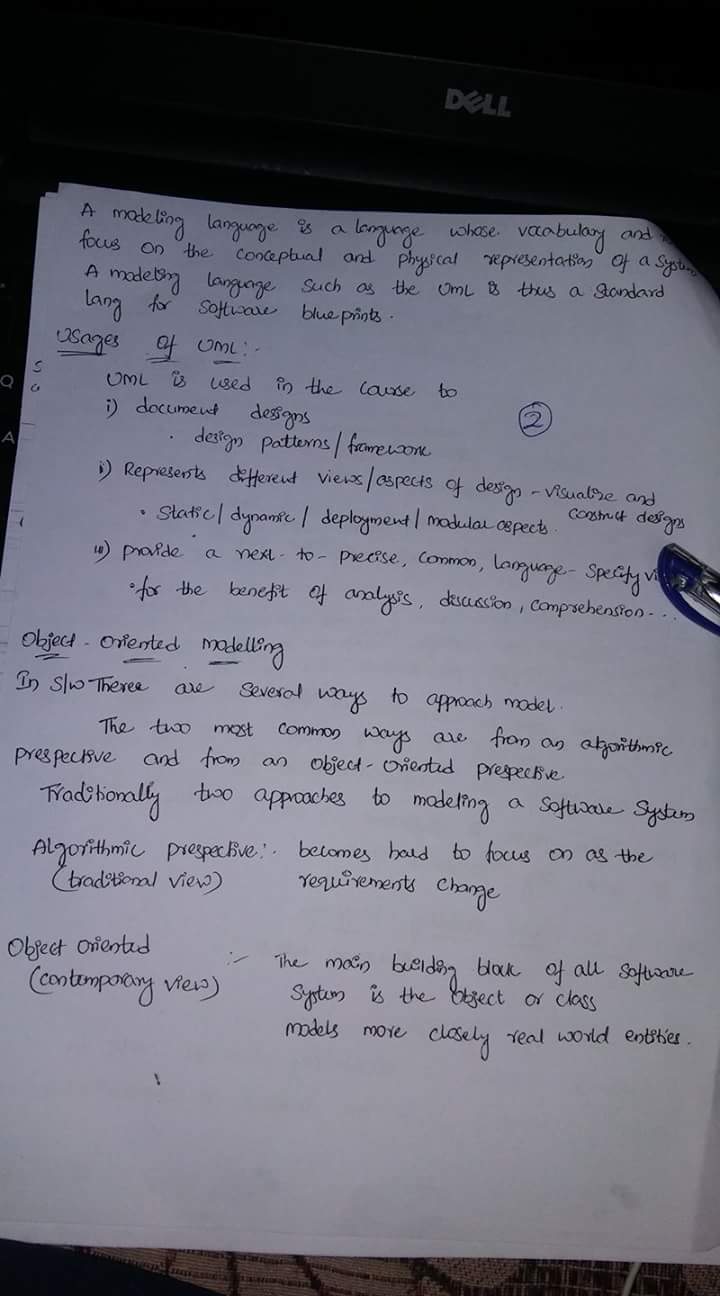 DELL
A modeling language is a language whose vocabulary and
focus on the conceptual and physical representation of a System
A modeling language such as the UML is thus a Standard
lang for software blue prints.
Usages of UML:-
UML is used in the course to
i) document designs
②
· design patterns/framework
ii) Represents different views/aspects of design - visualize and
construct designs
· Static/dynamic/deployment/modular aspects.
iii) provide a next-to-precise, common, language- specify
· for the benefit of analysis, discussion, comprehension...
Object-oriented modelling
In S/w Theree are several ways to approach model.
The two most common ways are from an algorithmic
prespective and from an object-oriented prespective
Traditionally two approaches to modeling a software System
Algorithmic prespective:- becomes hard to focus on as the
(traditional view) requirements change
Object oriented :- The main building block of all software
(contemporary view) System is the object or class
models more closely real world entities.
Q
A